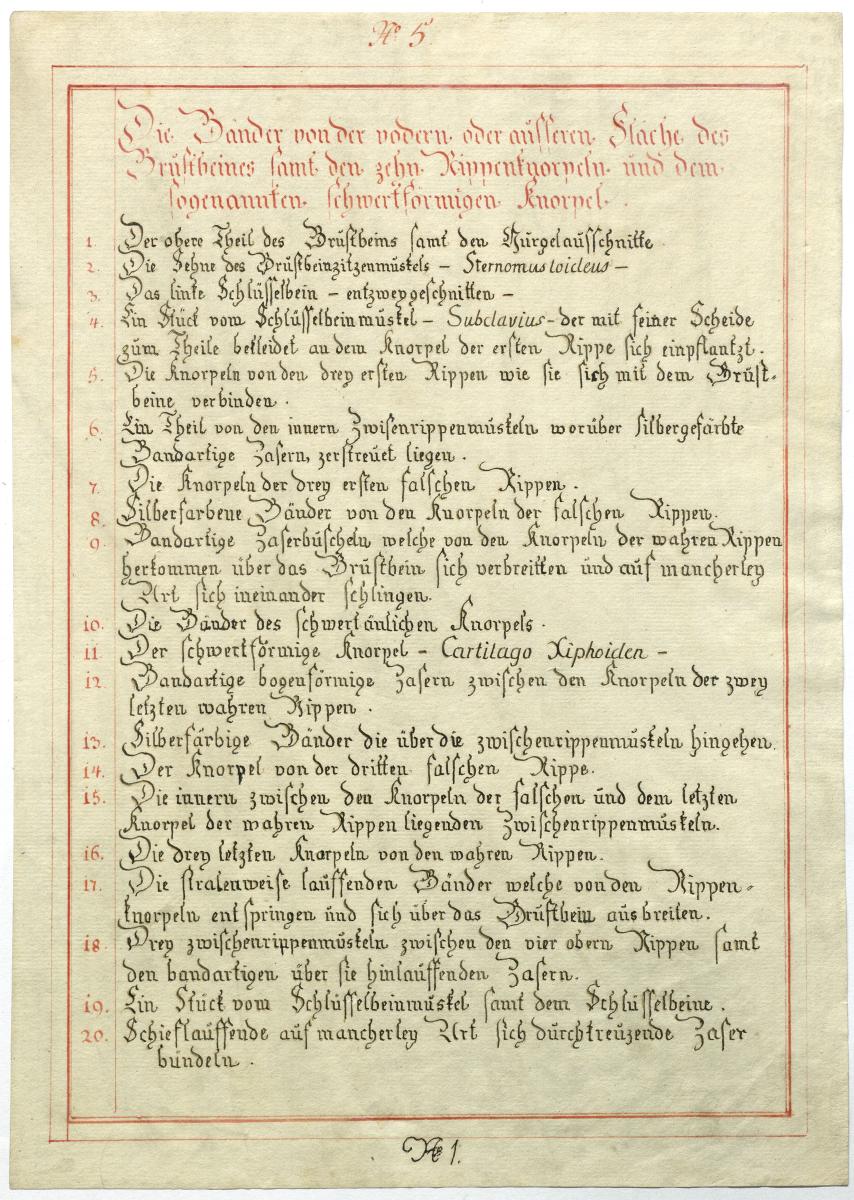 No 5
Die Bänder von der vodern oder äusseren Fläche des
Brustbeines samt den zehn Rippenknorpeln und dem
sogenannten schwertförmigen Knorpel.
1. Der obere Theil des Brustbeins samt den Gurgelausschnitte
2. Die Sehne des Brustbeinzitzenmuskels – Sternomustoideus –
3. Das linke Schlüsselbein – entzweygeschnitten –
4. Ein Stück vom Schlüsselbeinmuskel – Subclavius – der mit seiner Scheide
zum Theile bekleidet an dem Knorpel der ersten Rippe sich einpflantzt.
5. Die Knorpeln von den drey ersten Rippen wie sie sich mit dem Brust-
beine verbinden.
6. Ein Theil von den innern Zwisenrippenmuskeln worüber silbergefärbte
Bandartige Zasern, zerstreuet liegen.
7. Die Knorpeln der drey ersten falschen Rippen.
8. Silberfarbene Bänder von den Knorpeln der falschen Rippen.
9. Bandartige Zaserbüscheln welche von den Knorpeln der wahren Rippen
herkommen über das Brustbein sich verbreitten und auf mancherley
Art sich ineinander schlingen.
10. Die Bänder des schwertänlichen Knorpels.
11 Der schwertförmige Knorpel – Cartilago Xiphoiden –
12 Bandartige bogenförmige Zasern zwischen den Knorpeln der zwey
letzten wahren Rippen.
13. Silberfärbige Bänder die über die zwischenrippenmuskeln hingehen.
14. Der Knorpel von der dritten falschen Rippe.
15. Die innern zwischen den Knorpeln der falschen und dem letzten
Knorpel der wahren Rippen liegenden Zwischenrippenmuskeln.
16. Die drey letzten Knorpeln von den wahren Rippen.
17. Die stralenweise lauffenden Bänder welche von den Rippen-
knorpeln entspringen und sich über das Brustbein ausbreiten.
18 Drey zwischenrippenmuskeln zwischen den vier obern Rippen samt
den bandartigen über sie hinlauffenden Zasern.
19. Ein Stück vom Schlüsselbeinmuskel samt dem Schlüsselbeine.
20. Schieflauffende auf mancherley Art sich durchkreuzende Zaser
bündeln.
No 1.